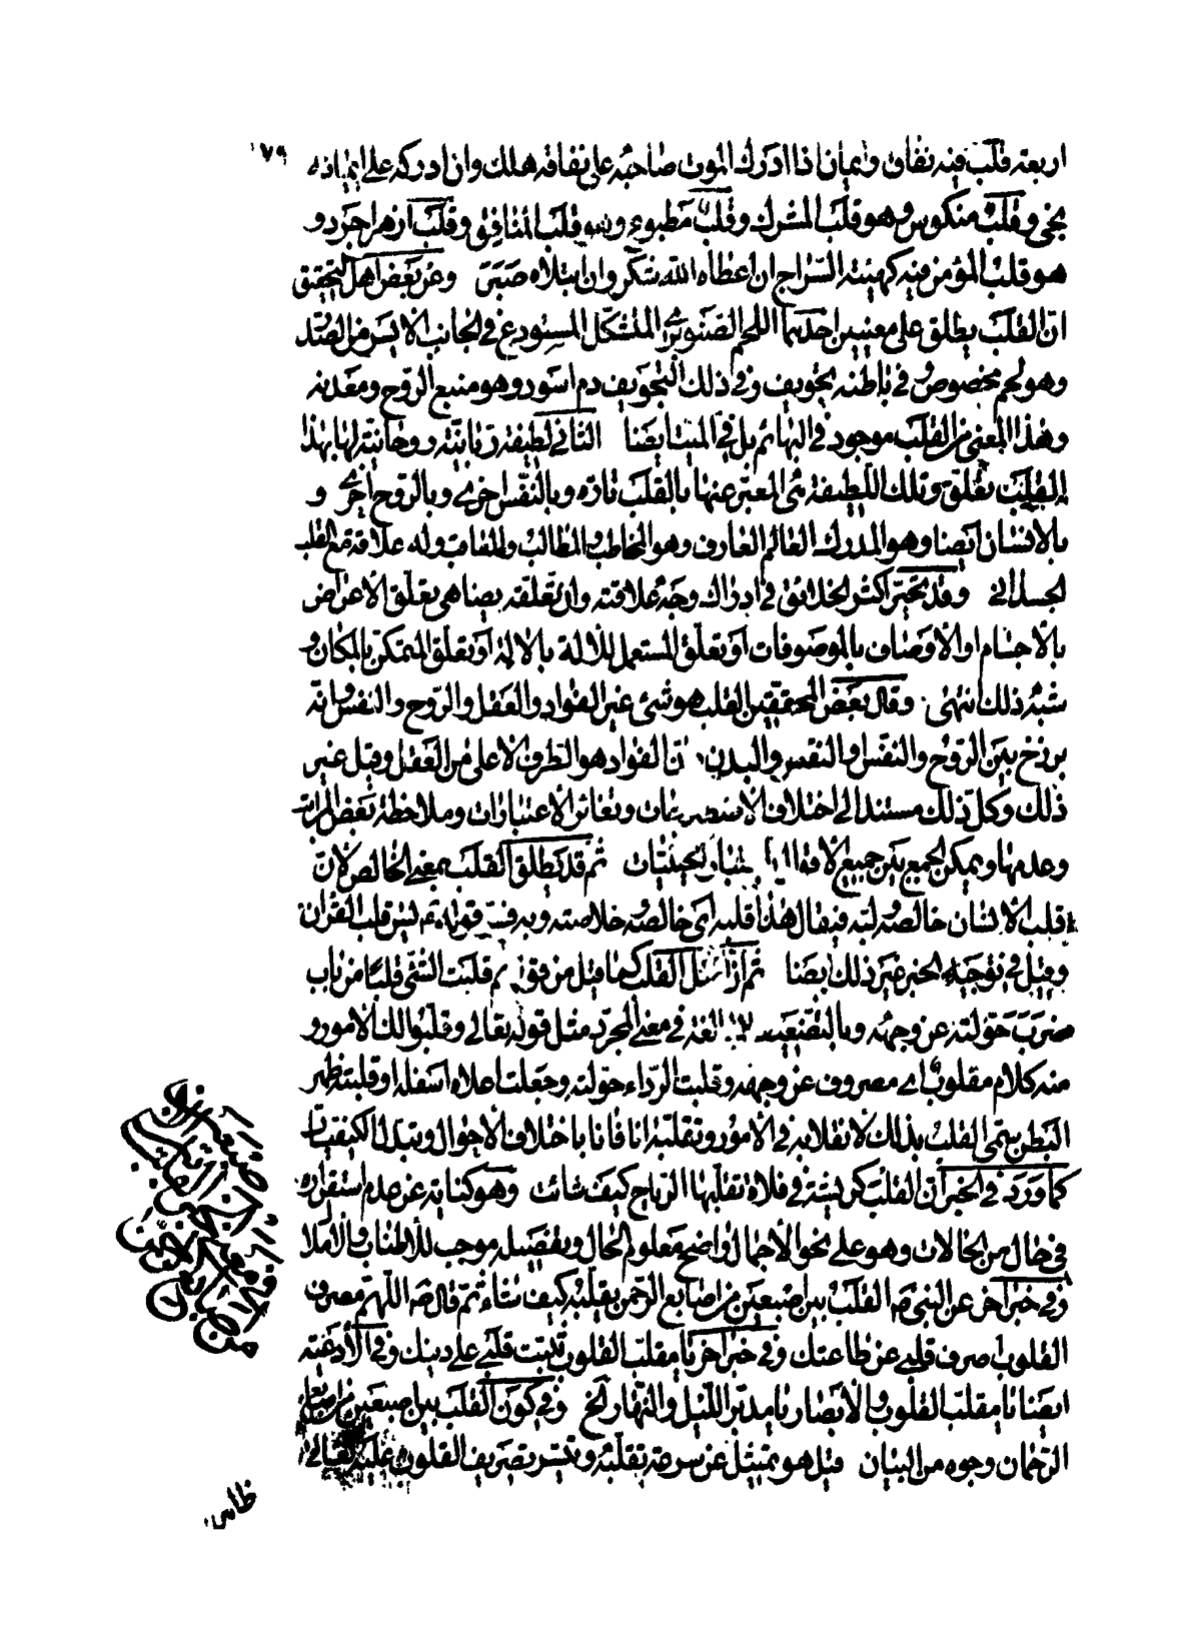 ١٧٩
اربعة قلب فيه نفاق وايمان اذا ادرك الموت صاحبه على نفاقه هلك وان ادركه على ايمانه
نجى وقلب منكوس وهو قلب المشرك وقلب مطبوع وهو قلب المنافق وقلب ازهر اجرد و
هو قلب المؤمن فيه كهيئة السراج ان اعطاه الله شكر وان ابتلاه صبر وعن بعض اهل التحقيق
ان القلب يطلق على معنيين احدهما اللحم الصنوبرى المشكل المستودع فى الجانب الايسر من الصدر
وهو لحم مخصوص وفى باطنه تجويف وفى ذلك التجويف دم اسود وهو منبع الروح ومعدنه
وهذا المعنى من القلب موجود فى البهائم بل فى الميت ايضا الثانى لطيفة ربانية روحانية لها بهذا
القلب تعلق وتلك اللطيفة هى المعبر عنها بالقلب تارة وبالنفس اخرى وبالروح اخرى و
بالانسان ايضا وهو المدرك العالم العارف وهو المخاطب والمطالب والمعاقب وله علاقة مع القلب
الجسدانى وقد تحير اكثر الخلائق فى ادراك وجه علاقته وان تعلقه يضاهى تعلق الاعراض
بالاجسام او الاوصاف بالموصوفات او تعلق المستعمل للآلة بالآلة او تعلق المتمكن بالمكان و
شبه ذلك انتهى وقال بعض المحققين القلب هو شئ غير الفؤاد والعقل والروح والنفس وانه
برزخ بين الروح والنفس او النفس والبدن ان الفؤاد هو الطرف الاعلى من العقل وقيل غير
ذلك وكل ذلك مستند الى اختلاف وتغائر الاعتبارات وملاحظة بعض المراتب
وعدمها ويمكن الجمع بين جميع الحيثيات ثم قد يطلق القلب بمعنى الخالص لان
قلب الانسان خالصه لبه فيقال هذا قلبه اى خالصه خلاصته وبه فسر قوله يس قلب القران
وقيل فى توجيه الخبر غير ذلك ايضا ثم ان اصل القلب كما قيل من قلبت الشئ قلبا من باب
ضرب حولته عن وجهه وبالتضعيف مبالغة فى معنى المجرد مثل قوله تعالى وقلبوا لك الامور و
منه كلام مقلوب اى مصروف عن وجهه وقلبت الرداء حولته وجعلت اعلاه اسفله او قلبت ظهر
البطن سمى القلب بذلك لانقلابه فى الامور وتقلبه انا فانا باختلاف الاحوال وتبدل الكيفيات
كما ورد فى الخبر ان القلب كريشة فى فلاة تقلبها الرياح كيف شائت وهو كناية عن عدم استقراره
فى حال من الحالات وهو على نحو الاجمال واضح معلوم الحال وتفصيله موجب للاطناب والاملال
وفى خبر اخر عن النبى ص القلب بين اصبعين من اصابع الرحمن يقلبه كيف شاء ثم قال ص اللهم مصرف
القلوب اصرف قلبى عن طاعتك وفى خبر اخر يا مقلب القلوب ثبت قلبى على دينك وفى الادعية
ايضا يا مقلب القلوب والابصار يا مدبر الليل والنهار الخ وفى كون القلب بين اصبعين من اصابع
الرحمان وجوه من البيان قيل هو تمثيل عن سرعة تقلبه وتيسر تصريف القلوب عليه تعالى